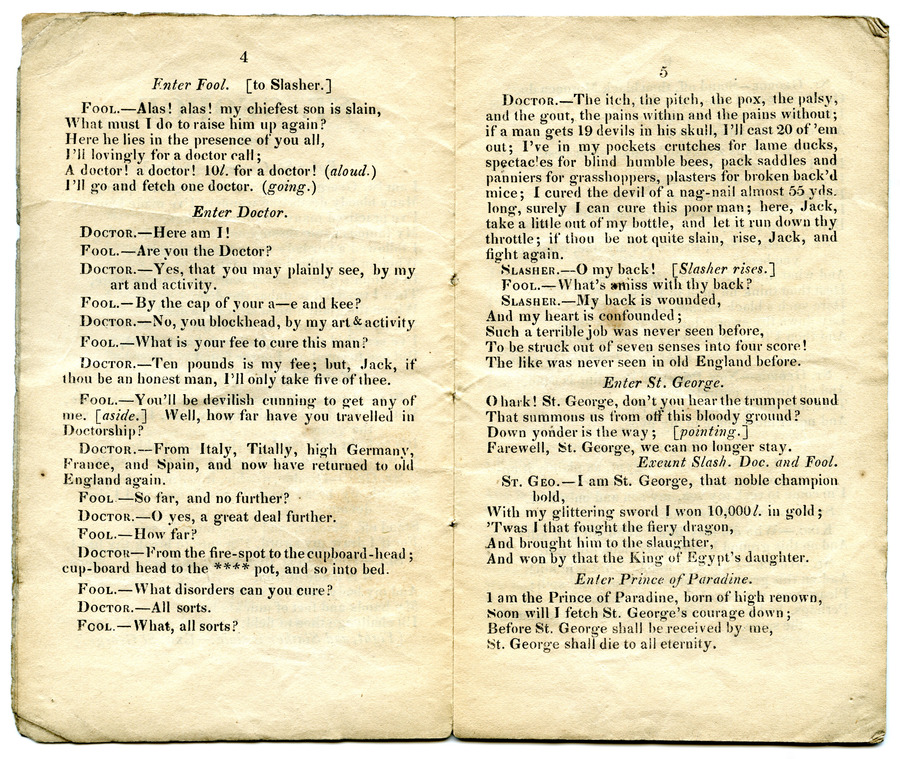 4
Enter Fool. [to Slasher.]
FOOL.—Alas! alas! my chiefest son is slain,
What must I do to raise him up again?
Here he lies in the presence of you all,
I'll lovingly for a doctor call;
A doctor! a doctor! 10l. for a doctor! (aloud.)
I'll go and fetch one doctor. (going.)
Enter Doctor.
DOCTOR.—Here am I!
FOOL.—Are you the Doctor?
DOCTOR.—Yes, that you may plainly see, by my
art and activity.
FOOL.—By the cap of your a—e and kee?
DOCTOR.—No, you blockhead, by my art & activity
FOOL.—What is your fee to cure this man?
DOCTOR.—Ten pounds is my fee; but, Jack, if
thou be an honest man, I'll only take five of thee.
FOOL.—You'll be devilish cunning to get any of
me. [aside.] Well, how far have you travelled in
Doctorship?
DOCTOR.—From Italy, Titally, high Germany,
France, and Spain, and now have returned to old
England again.
FOOL.—So far, and no further?
DOCTOR.—O yes, a great deal further.
FOOL.—How far?
DOCTOR—From the fire-spot to the cupboard-head;
cup-board head to the **** pot, and so into bed.
FOOL.—What disorders can you cure?
DOCTOR.—All sorts.
FOOL.—What, all sorts?
5
DOCTOR.—The itch, the pitch, the pox, the palsy,
and the gout, the pains within and the pains without;
if a man gets 19 devils in his skull, I'll cast 20 of 'em
out; I've in my pockets crutches for lame ducks,
spectacles for blind humble bees, pack saddles and
panniers for grasshoppers, plasters for broken back'd
mice; I cured the devil of a nag-nail almost 55 yds.
long, surely I can cure this poor man; here, Jack,
take a little out of my bottle, and let it run down thy
throttle; if thou be not quite slain, rise, Jack, and
fight again.
SLASHER.—O my back! [Slasher rises.]
FOOL.—What's amiss with thy back?
SLASHER.—My back is wounded,
And my heart is confounded;
Such a terrible job was never seen before,
To be struck out of seven senses into four score!
The like was never seen in old England before.
Enter St. George.
O hark! St. George, don't you hear the trumpet sound
That summons us from off this bloody ground?
Down yonder is the way; [pointing.]
Farewell, St. George, we can no longer stay.
Exeunt Slash. Doc. and Fool.
ST. GEO.—I am St. George, that noble champion
bold,
With my glittering sword I won 10,000l. in gold;
'Twas I that fought the fiery dragon,
And brought him to the slaughter,
And won by that the King of Egypt's daughter.
Enter Prince of Paradine.
I am the Prince of Paradine, born of high renown,
Soon will I fetch St. George's courage down;
Before St. George shall be received by me,
St. George shall die to all eternity.